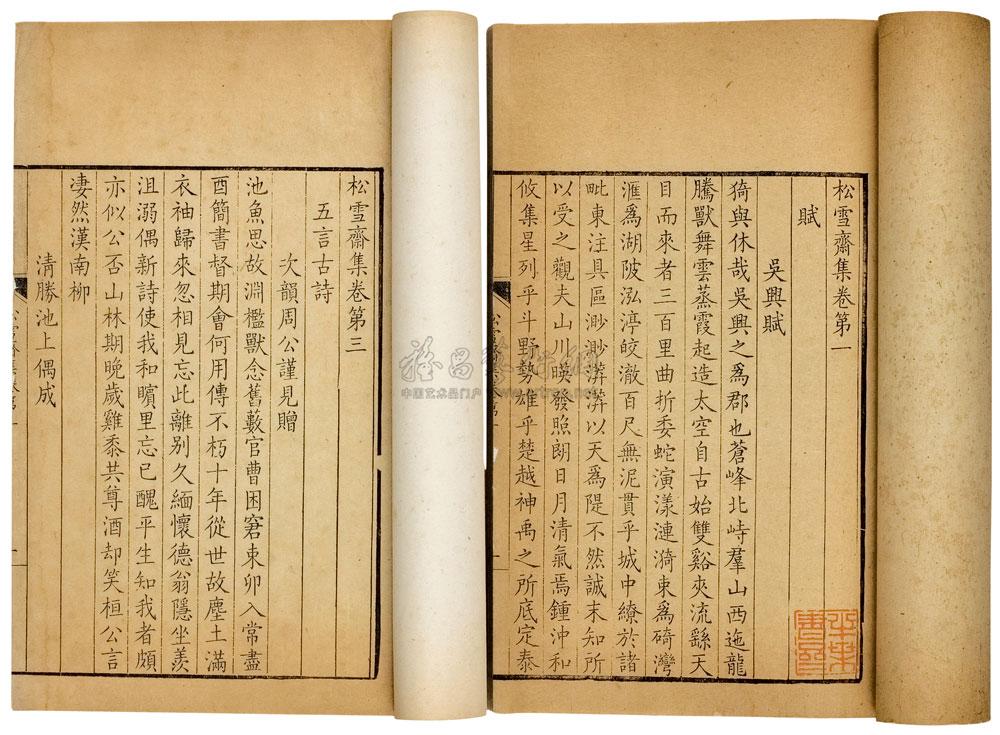 松雪齋集卷第一
賦
吳興賦
猗與休哉吳興之爲郡也蒼峰北峙羣山西迤龍
騰獸舞雲蒸霞起造太空自古始雙谿夾流繇天
目而來者三百里曲折委蛇演漾漣漪束爲碕灣
滙爲湖陂泓渟皎澈百尺無泥貫乎城中繚於諸
毗東注具區渺渺漭漭以天爲隄不然誠末知所
以受之觀夫山川暎發照朗日月清氣焉鍾沖和
攸集星列乎斗野勢雄乎楚越神禹之所底定泰
松雪齋集卷第三
五言古詩
次韻周公謹見贈
池魚思故淵檻獸念舊藪官曹困窘束卯入常盡
酉簡書督期會何用傳不朽十年從世故塵土滿
衣袖歸來忽相見忘此離別久緬懷德翁隱坐羡
沮溺偶新詩使我和矉里忘已醜平生知我者頗
亦似公否山林期晚歲雞黍共尊酒却笑桓公言
凄然漢南柳
清勝池上偶成
中国艺术品门户